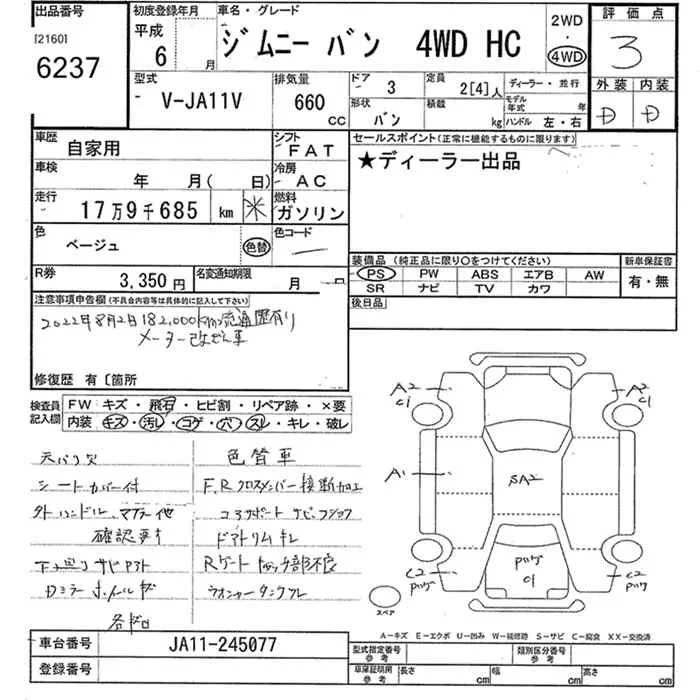 出品番号
[2160]
6237
初度登録年月
平成
6 月
車名・グレード
ジムニー バン 4WD HC
2WD
・
4WD
評価点
3
外装 内装
D D
型式
V-JA11V
排気量
660
CC
ドア
3
定員
2[4]人
ディーラー・並行
形状
バン
積載
kg
モデル年式
年
ハンドル 左・右
車歴
自家用
シフト
FAT
セールスポイント(正常に機能するものに限ります)
★ディーラー出品
車検
年 月( 日)
冷房
AC
走行
17万9千685 km ※
燃料
ガソリン
色
ベージュ
色替
色コード
R券
3,350円
名変通知期限
月 日
装備品 (純正品に限り○をつけてください)
PS PW ABS エアB AW
SR ナビ TV カワ
新車保証書
有・無
後日品
注意事項申告欄(不具合内容等は具体的に記入して下さい)
2022年8月2日182,000km流通歴有り
メーター改ざん車
修復歴 有〔箇所
検査員記入欄
FW キズ・飛石・ヒビ割・リペア跡・×要
内装 キズ・汚レ・コゲ・穴・スレ・キレ・破レ
天バリ欠
シートカバー付
外ハンドル、マフラー他
確認要す
色替車
F,Rクロスメンバー接断加工
コアサポート サビ
ドアトリムキレ
A2
C1
A2
C1
A1
SA2
C2
C2
C1
スペア
A-キズ E-エクボ U-凹み W-補修跡 S-サビ C-腐食 XX-交換済
車台番号
JA11-245077
登録番号
型式指定番号
参考
類別区分番号
参考
車庫証明用
参考
長さ cm
幅 cm
高さ cm